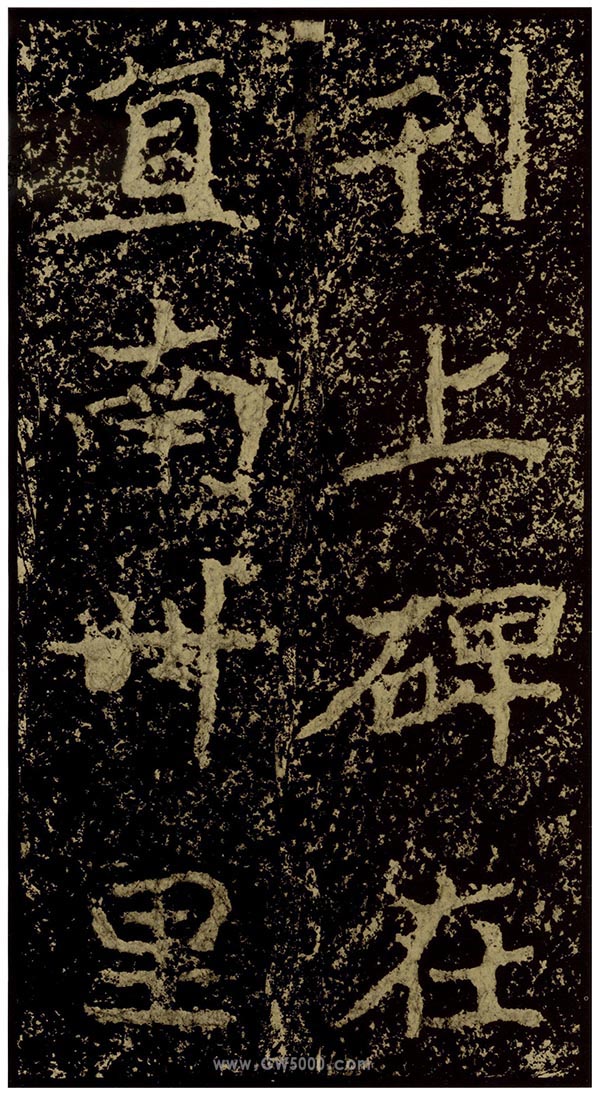 刊上碑在
直南卌里
www.GW5000.com